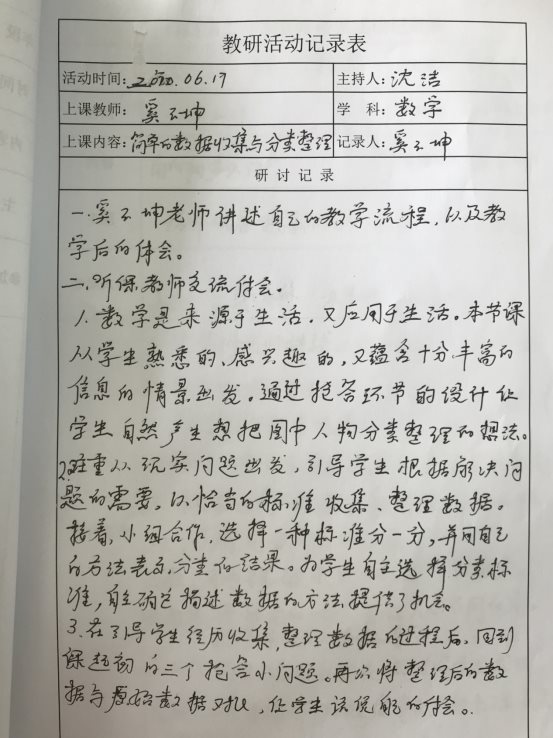 教研活动记录表
活动时间: 2020.06.17 主持人: 沈洁
上课教师: 奚玉坤 学 科: 数学
上课内容: 简单的数据收集与分类整理 记录人: 奚玉坤
研 讨 记 录
一.奚玉坤老师讲述自己的教学流程,以及教
学后的体会。
二.听课教师交流体会。
1.数学是来源于生活,又应用于生活。本节课
从学生熟悉的、感兴趣的,又蕴含十分丰富的
信息的情景出发。通过抢答环节的设计让
学生自然产生想把图中人物分类整理的想法。
2.注重从现实问题出发,引导学生根据解决问
题的需要,以恰当的标准收集、整理数据。
接着,小组合作,选择一种标准分一分,并用自己
的方法表示分类的结果。为学生自主选择分类标
准,自主确定描述数据的方法提供了机会。
3.在引导学生经历收集,整理数据的过程后,回到
课起初的三个抢答小问题。再次将整理后的数
据与原始数据对比,让学生谈谈自己的体会。